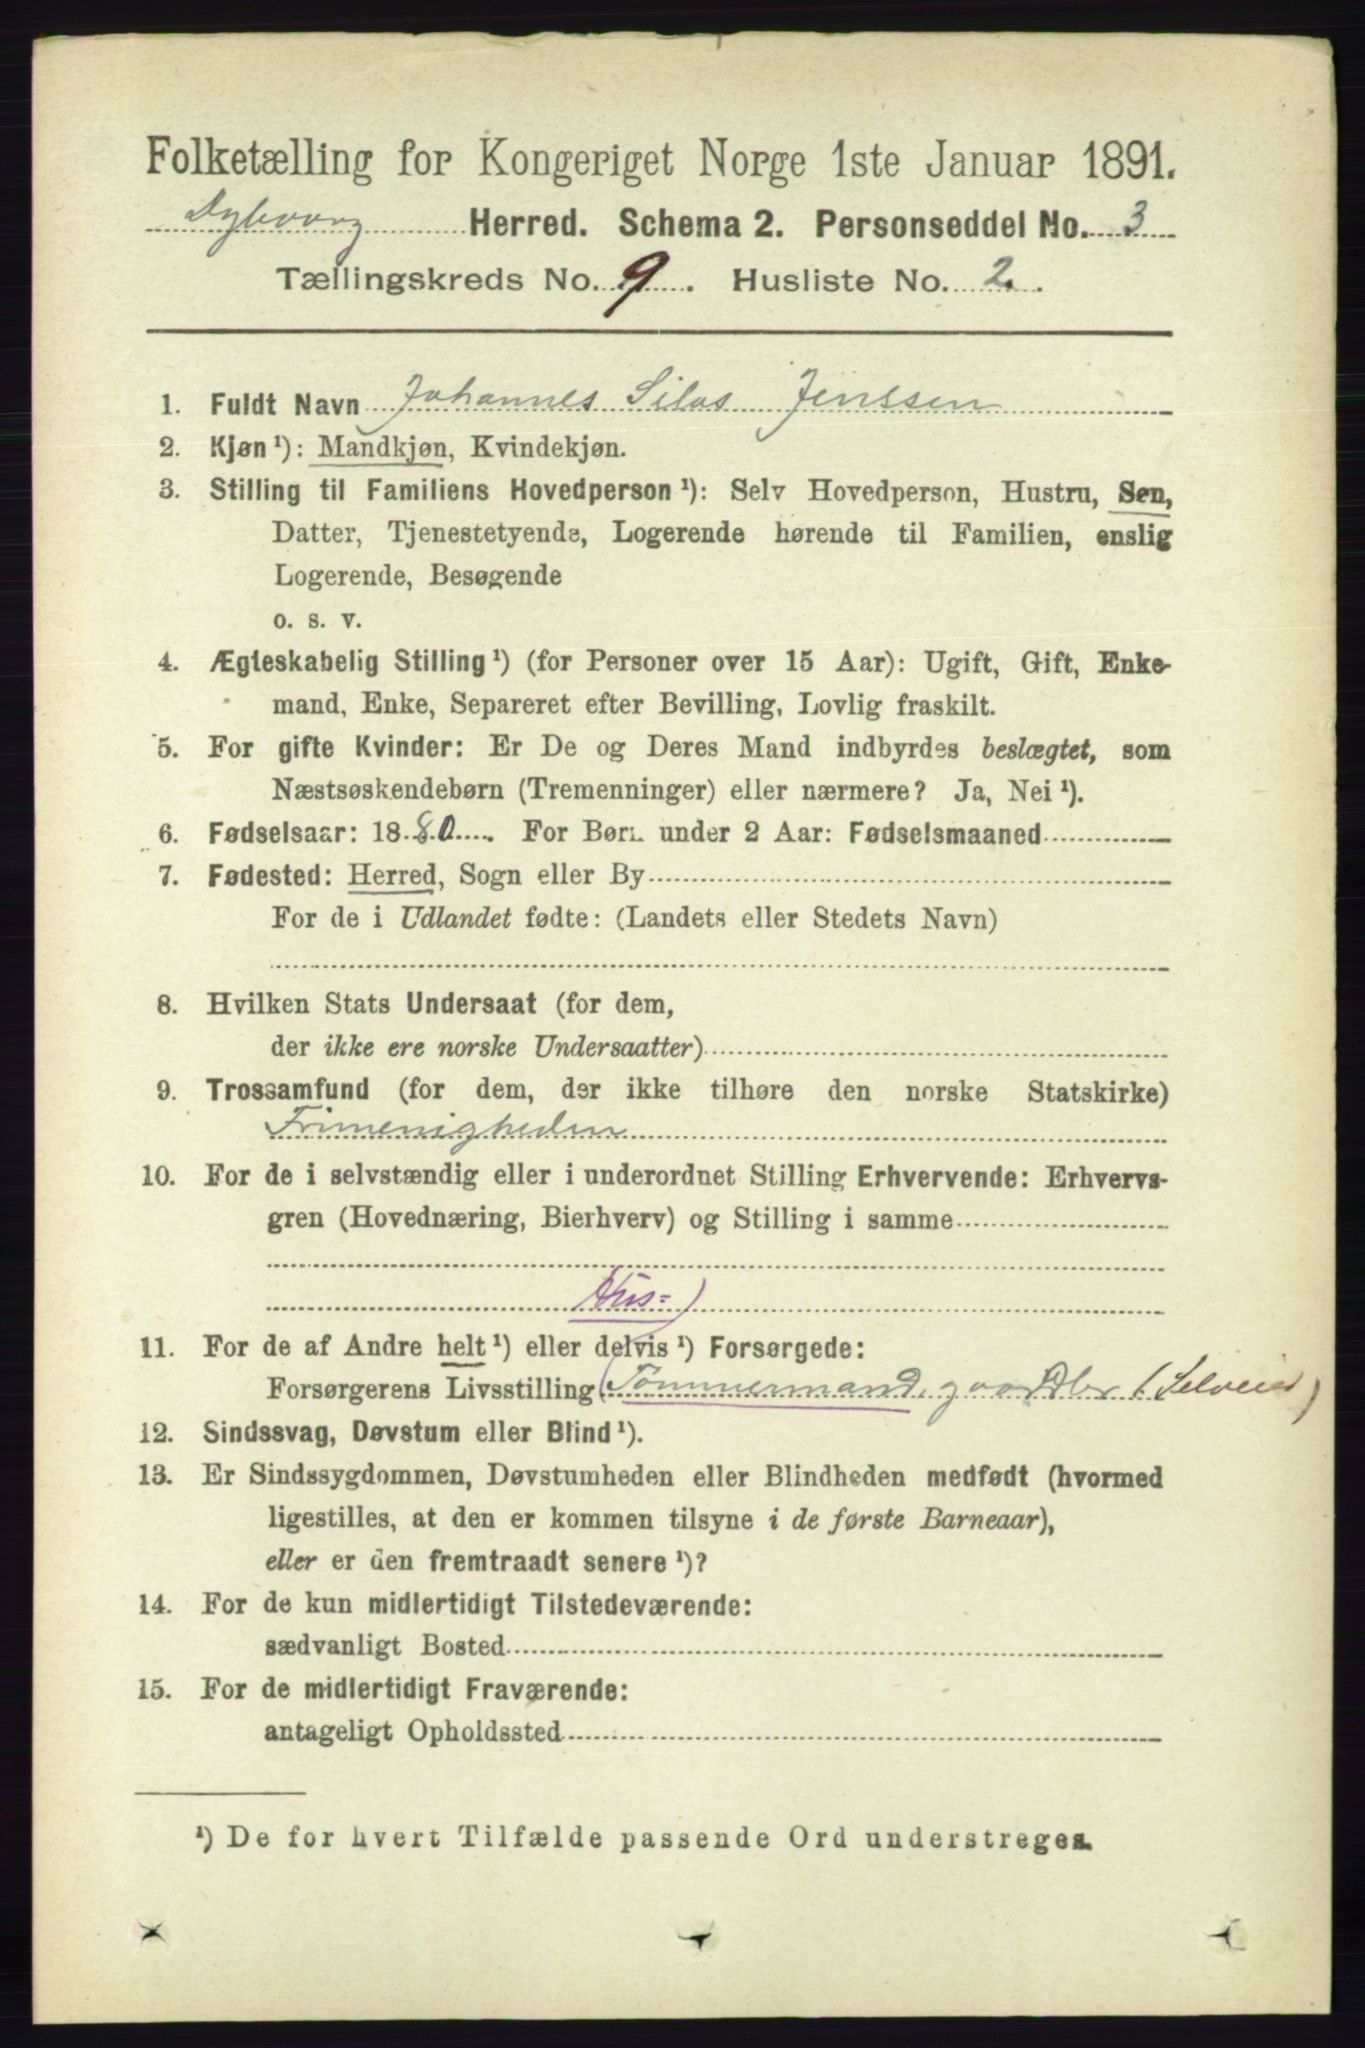 Folketælling for Kongeriget Norge 1ste Januar 1891.
Dybvaag Herred. Schema 2. Personseddel No. 3
Tællingskreds No. 9. Husliste No. 2.
1. Fuldt Navn Johannes Silas Jenssen
2. Kjøn ¹): Mandkjøn, Kvindekjøn.
3. Stilling til Familiens Hovedperson ¹): Selv Hovedperson, Hustru, Søn,
Datter, Tjenestetyende, Logerende hørende til Familien, enslig
Logerende, Besøgende
o. s. v.
4. Ægteskabelig Stilling ¹) (for Personer over 15 Aar): Ugift, Gift, Enke-
mand, Enke, Separeret efter Bevilling, Lovlig fraskilt.
5. For gifte Kvinder: Er De og Deres Mand indbyrdes beslægtet, som
Næstsøskendebørn (Tremenninger) eller nærmere? Ja, Nei ¹).
6. Fødselsaar: 1880. For Børn under 2 Aar: Fødselsmaaned
7. Fødested: Herred, Sogn eller By
For de i Udlandet fødte: (Landets eller Stedets Navn)
8. Hvilken Stats Undersaat (for dem,
der ikke ere norske Undersaatter)
9. Trossamfund (for dem, der ikke tilhøre den norske Statskirke)
Frimenigheden
10. For de i selvstændig eller i underordnet Stilling Erhvervende: Erhvervs-
gren (Hovednæring, Bierhverv) og Stilling i samme
Hus=)
11. For de af Andre helt ¹) eller delvis ¹) Forsørgede:
Forsørgerens Livsstilling (Tømmermand, gaardbr (Selveier)
12. Sindssvag, Døvstum eller Blind ¹).
13. Er Sindssygdommen, Døvstumheden eller Blindheden medfødt (hvormed
ligestilles, at den er kommen tilsyne i de første Barneaar),
eller er den fremtraadt senere ¹)?
14. For de kun midlertidigt Tilstedeværende:
sædvanligt Bosted
15. For de midlertidigt Fraværende:
antageligt Opholdssted
¹) De for hvert Tilfælde passende Ord understreges.